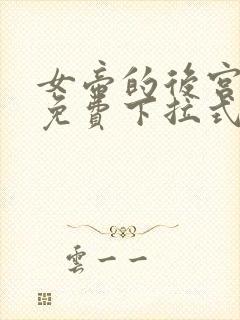 女帝的後宮
免費下拉式
雲一一